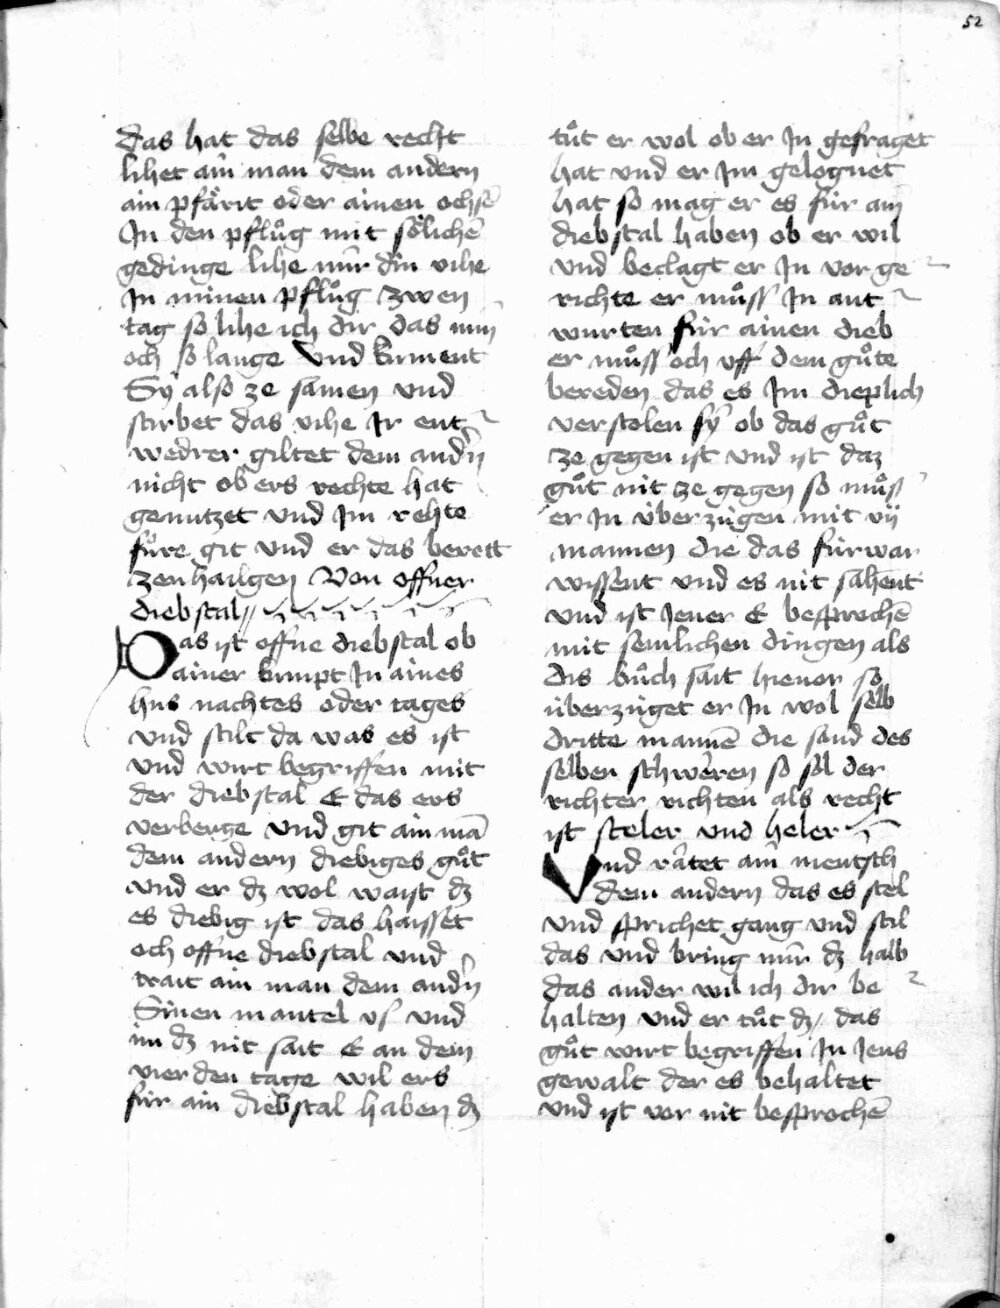 52
das hat das selbe recht
lihet ain man dem andern
ain pfärit oder ainen ochsē
In den pflůg mit sölichē
gedinge lihe mir din vihe
In minen pflůg zwen
tag so lihe ich dir das min
och so lange Vnd kument
Sÿ also ze samen vnd
stirbet das vihe Ir ent
wedrer giltet dem andn̄
nicht ob ers rechte hat
genutzet vnd Im rehte
fůre git vnd er das berett
zen hailgen Von offner
diebstal
Das ist offne diebstal ob
ainer kumpt In aines
hus nachtes oder tages
vnd stilt da was es ist
vnd wirt begriffen mit
der diebstal E das ers
verberge vnd git ain mā
dem andern diebiges gůt
vnd er dz wol waist dz
es diebig ist das haisset
och offne diebstal vnd
trait ain man dem andn̄
Sinen mantel vs vnd
im dz nit sait E an dem
vierden tage wil ers
für ain diebstal haben dz
tůt er wol ob er In gefraget
hat vnd er Im gelognet
hat so mag er es für ain
diebstal haben ob er wil
vnd beclagt er In vor ge
richte er můss In ant
wurten für ainen dieb
er můss och vff dem gůte
bereden das es Im dieplich
verstolen sÿ ob das gůt
ze gegen ist vnd ist daz
gůt nit ze gegen so můss
er In überzügen mit vij
mannen die das fürwar
wissent vnd es nit sahent
vnd ist Jener E besprochē
mit semlichen dingen als
dis bůch sait hieuor so
überzüget er In wol selb
dritte mannē die sand des
selben schweren so sol der
richter richten als recht
ist steler vnd heler
Vnd râtet ain mentsch
dem andern das es stel
vnd sprichet gang vnd stil
das vnd bring mir dz halb
das ander wil ich dir be
halten vnd er tůt dz / das
gůt wirt begriffen In Jens
gewalt der es behaltet
vnd ist vor nit besprochē